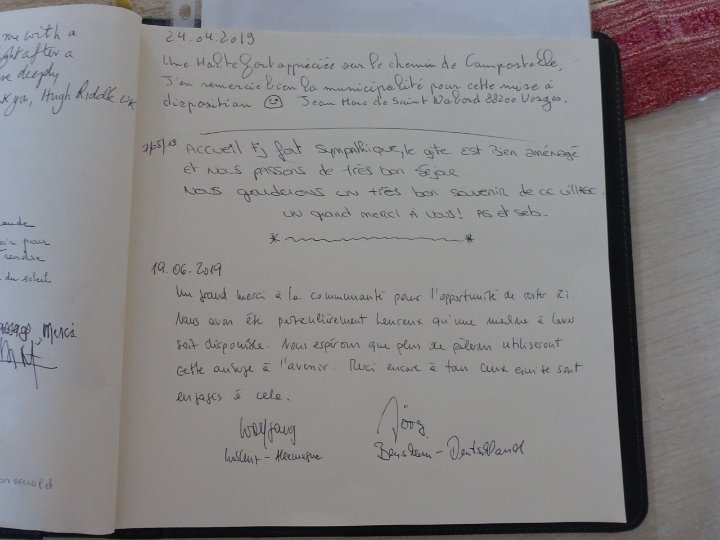 me with a
night after a
deeply
you, Hugh Riddle UK
pour
du soleil
Merci
24.04.2019
Une Halte fort appréciée sur le chemin de Compostelle,
J'en remercie bien la municipalité pour cette mise à
disposition ☺ Jean Marc de Saint Nabord 88200 Vosges.
7/05/19 Accueil fort sympathique, le gite est Bien aménagé
et nous passons de très bon séjour.
Nous garderons un très bon souvenir de ce village.
un grand merci à vous! AS et seb.
19.06.2019
Un grand merci à la communauté pour l'opportunité de rester ici.
Nous avons été particulièrement heureux qu'une machine à laver
soit disponible. Nous espérons que plus de pèlerins utiliseront
cette auberge à l'avenir. Merci encore à tous ceux qui se sont
engagés à cela.
Wolfgang Jörg
Allemagne Bensheim - Deutschland